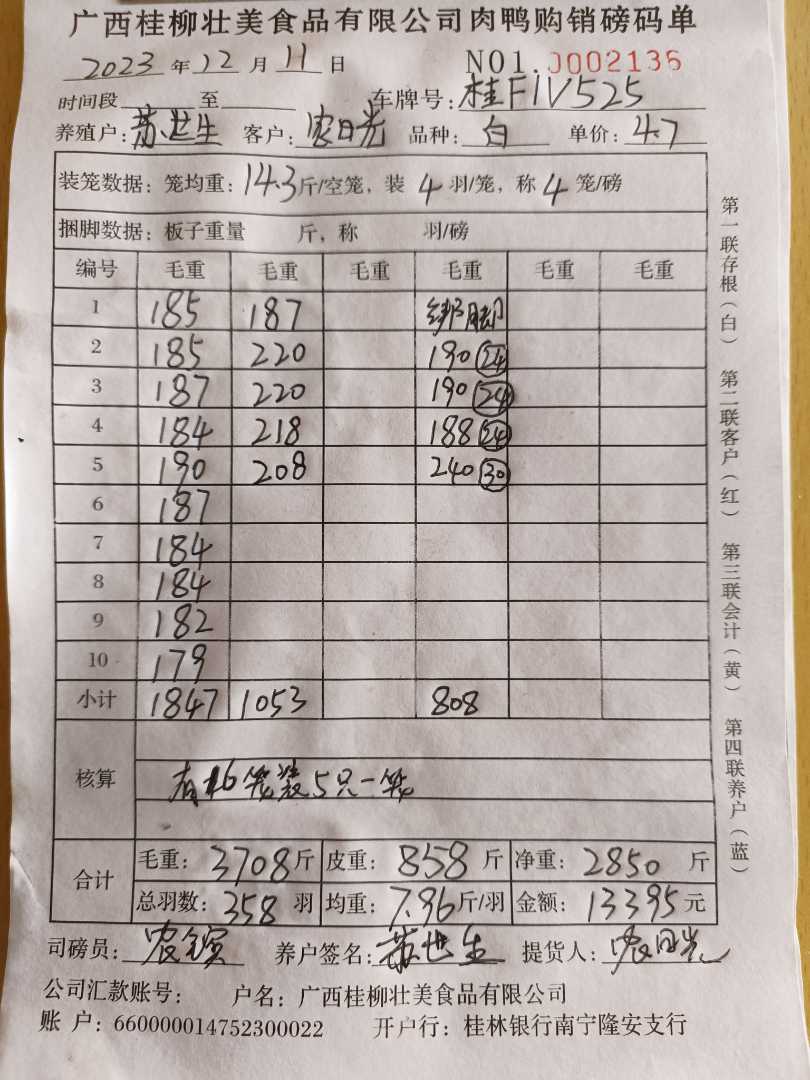 广西桂柳壮美食品有限公司肉鸭购销磅码单
2023 年 12 月 11 日 NO1. 0002135
时间段 至 车牌号: 桂F1V525
养殖户: 苏世生 客户: 农日光 品种: 白 单价: 4.7
装笼数据: 笼均重: 14.3 斤/空笼, 装 4 羽/笼, 称 4 笼/磅
捆脚数据: 板子重量 斤, 称 羽/磅
编号 毛重 毛重 毛重 毛重 毛重 毛重
1 185 187 绑脚
2 185 220 190 24
3 187 220 190 24
4 184 218 188 24
5 190 208 240 30
6 187
7 184
8 184
9 182
10 179
小计 1847 1053 808
核算 有16笼装5只一笼
合计 毛重: 3708 斤 皮重: 858 斤 净重: 2850 斤
总羽数: 358 羽 均重: 7.96 斤/羽 金额: 13395 元
司磅员: 养户签名: 苏世生 提货人: 农日光
公司汇款账号: 户名: 广西桂柳壮美食品有限公司
账 户: 660000014752300022 开户行: 桂林银行南宁隆安支行
第一联存根(白) 第二联客户(红) 第三联会计(黄) 第四联养户(蓝)